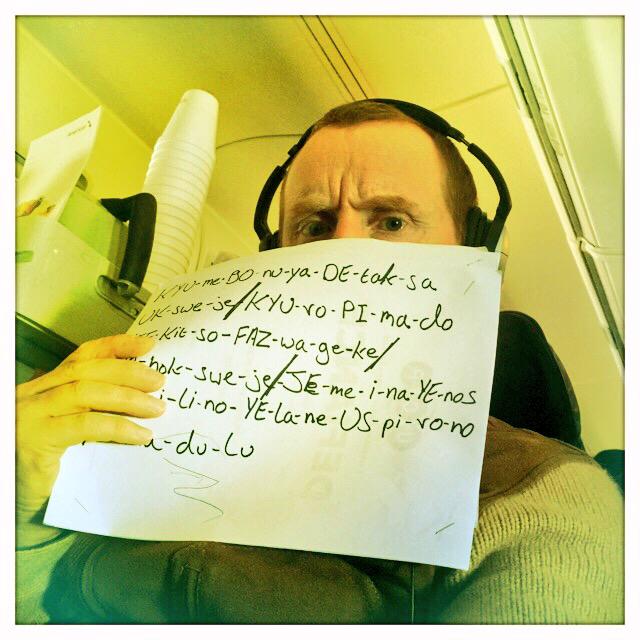 KYU-me-BO-nu-ya-DE-tak-sa
OK-swe-je/KYU-ro-PI-ma-do
Kit-so-FAZ-wa-ge-ke/
hok-swe-je/JE-me-i-na-YE-nos
i-li-no-YE-la-ne-US-pi-ro-no
du-lu